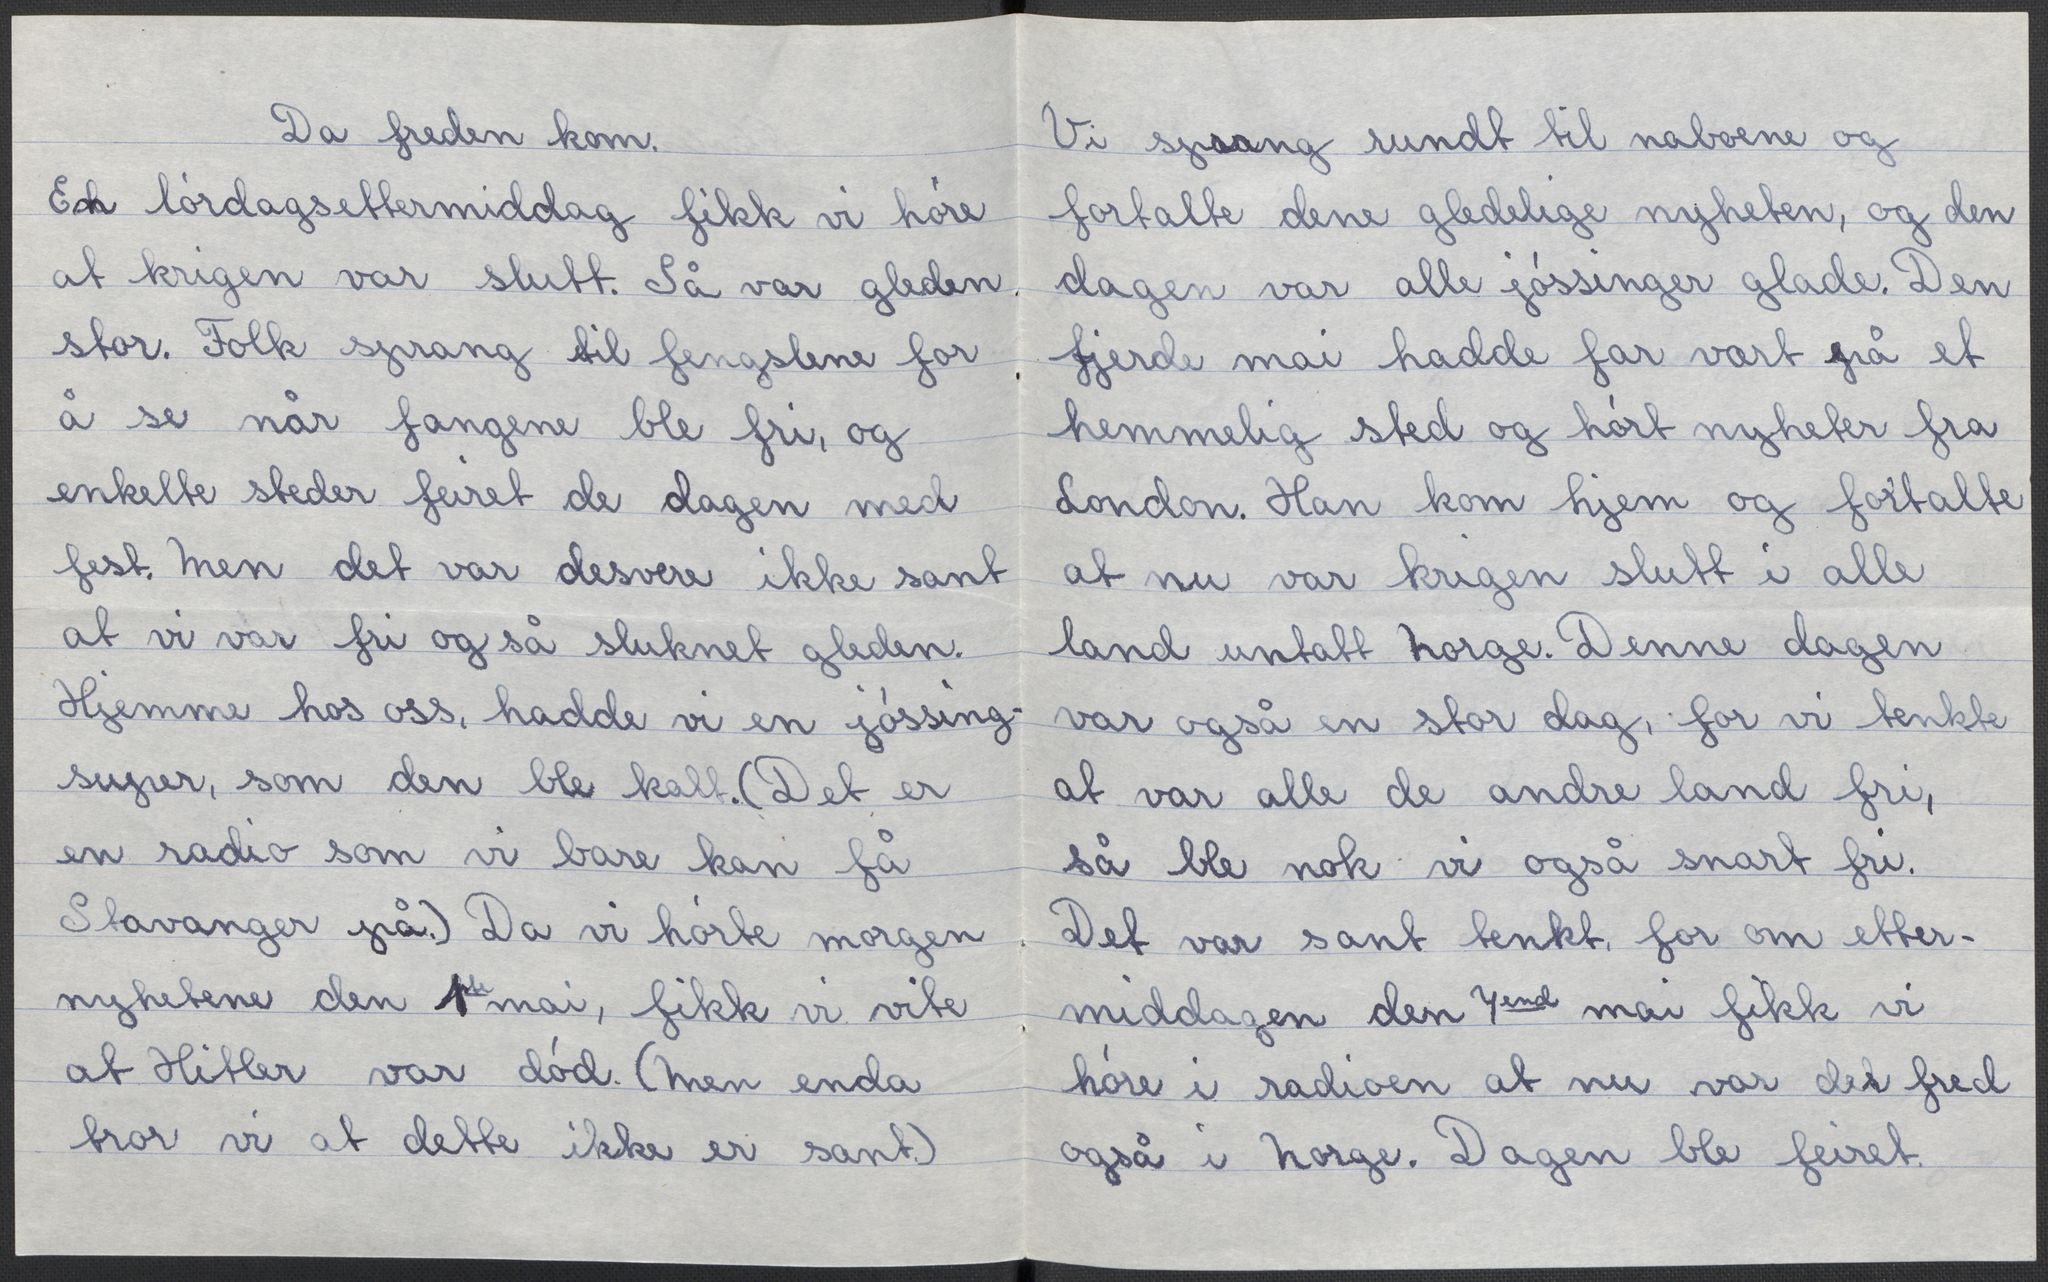 Da freden kom.
En lórdagsettermiddag fikk vi hóre
at krigen var slutt. Så var gleden
stor. Folk sprang til fengslene for
å se når fangene ble fri, og
enkelte steder feiret de dagen med
fest. Men det var desvere ikke sant
at vi var fri og så sluknet gleden.
Hjemme hos oss, hadde vi en jóssing-
super, som den ble kalt. (Det er
en radio som vi bare kan få
Stavanger på.) Da vi hórte morgen
nyhetene den 1ste mai, fikk vi vite
at Hitler var dód. (Men enda
tror vi at dette ikke er sant.)
Vi sprang rundt til naboene og
fortalte dene gledelige nyheten, og den
dagen var alle jóssinger glade. Den
fjerde mai hadde far vart på et
hemmelig sted og hórt nyheter fra
London. Han kom hjem og fortalte
at nu var krigen slutt i alle
land untatt Norge. Denne dagen
var også en stor dag, for vi tenkte
at var alle de andre land fri,
så ble nok vi også snart fri.
Det var sant tenkt, for om etter-
middagen den 7end mai fikk vi
hóre i radioen at nu var det fred
også i Norge. Dagen ble feiret.